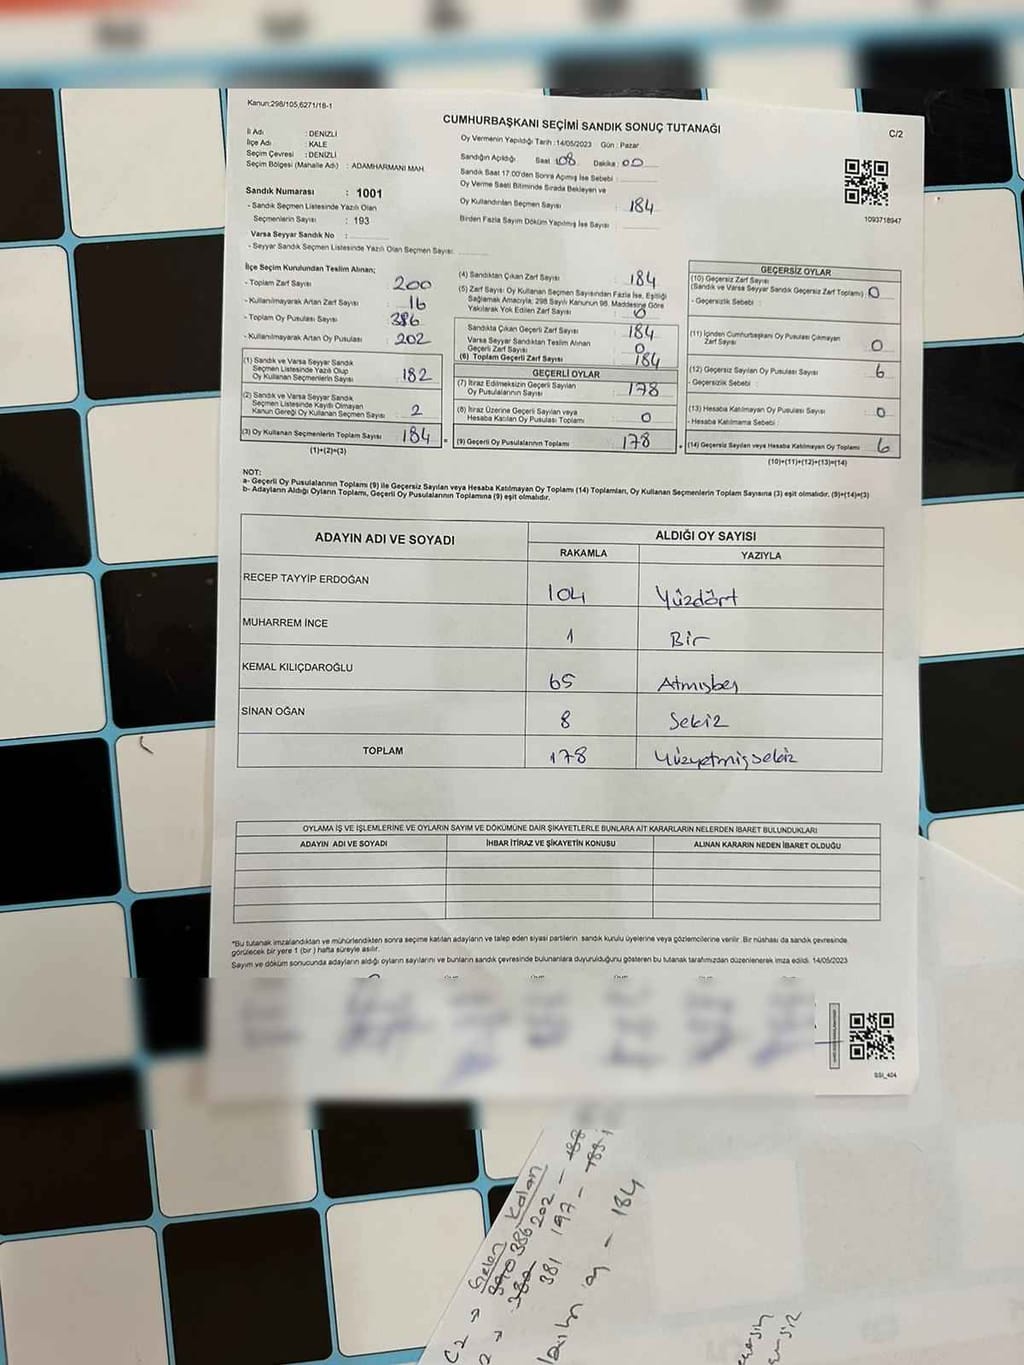 Kanun:298/105,6271/18-1
CUMHURBAŞKANI SEÇİMİ SANDIK SONUÇ TUTANAĞI
C/2
İl Adı : DENİZLİ
İlçe Adı : KALE
Seçim Çevresi : DENİZLİ
Seçim Bölgesi (Mahalle Adı) : ADAMHARMANI MAH
Sandık Numarası : 1001
- Sandık Seçmen Listesinde Yazılı Olan
Seçmenlerin Sayısı : 193
Varsa Seyyar Sandık No :
- Seyyar Sandık Seçmen Listesinde Yazılı Olan Seçmen Sayısı:
Oy Vermenin Yapıldığı Tarih :14/05/2023 Gün : Pazar
Sandığın Açıldığı Saat :08 Dakika : 00
Sandık Saat 17.00'den Sonra Açılmış İse Sebebi :
Oy Verme Saati Bitiminde Sırada Bekleyen ve
Oy Kullandırılan Seçmen Sayısı : 184
Birden Fazla Sayım Döküm Yapılmış İse Sayısı :
1093718947
İlçe Seçim Kurulundan Teslim Alınan;
- Toplam Zarf Sayısı : 200
- Kullanılmayarak Artan Zarf Sayısı : 16
- Toplam Oy Pusulası Sayısı : 386
- Kullanılmayarak Artan Oy Pusulası : 202
(1) Sandık ve Varsa Seyyar Sandık
Seçmen Listesinde Yazılı Olup
Oy Kullanan Seçmenlerin Sayısı : 182
(2) Sandık ve Varsa Seyyar Sandık
Seçmen Listesinde Kayıtlı Olmayan
Kanun Gereği Oy Kullanan Seçmen Sayısı : 2
(3) Oy Kullanan Seçmenlerin Toplam Sayısı : 184
(1)+(2)=(3)
(4) Sandıktan Çıkan Zarf Sayısı : 184
(5) Zarf Sayısı Oy Kullanan Seçmen Sayısından Fazla İse, Eşitliği
Sağlamak Amacıyla; 298 Sayılı Kanunun 98. Maddesine Göre
Yakılarak Yok Edilen Zarf Sayısı : 0
Sandıkta Çıkan Geçerli Zarf Sayısı : 184
Varsa Seyyar Sandıktan Teslim Alınan
Geçerli Zarf Sayısı : 0
(6) Toplam Geçerli Zarf Sayısı : 184
GEÇERLİ OYLAR
(7) İtiraz Edilmeksizin Geçerli Sayılan
Oy Pusulalarının Sayısı : 178
(8) İtiraz Üzerine Geçerli Sayılan veya
Hesaba Katılan Oy Pusulası Toplamı : 0
(9) Geçerli Oy Pusulalarının Toplamı : 178
GEÇERSİZ OYLAR
(10) Geçersiz Zarf Sayısı
(Sandık ve Varsa Seyyar Sandık Geçersiz Zarf Toplamı) : 0
- Geçersizlik Sebebi :
(11) İçinden Cumhurbaşkanı Oy Pusulası Çıkmayan
Zarf Sayısı : 0
(12) Geçersiz Sayılan Oy Pusulası Sayısı : 6
- Geçersizlik Sebebi :
(13) Hesaba Katılmayan Oy Pusulası Sayısı : 0
- Hesaba Katılmama Sebebi :
(14) Geçersiz Sayılan veya Hesaba Katılmayan Oy Toplamı : 6
(10)+(11)+(12)+(13)=(14)
NOT:
a- Geçerli Oy Pusulalarının Toplamı (9) ile Geçersiz Sayılan veya Hesaba Katılmayan Oy Toplamı (14) Toplamları, Oy Kullanan Seçmenlerin Toplam Sayısına (3) eşit olmalıdır. (9)+(14)=(3)
b- Adayların Aldığı Oyların Toplamı, Geçerli Oy Pusulalarının Toplamına (9) eşit olmalıdır.
ADAYIN ADI VE SOYADI
ALDIĞI OY SAYISI
RAKAMLA YAZIYLA
RECEP TAYYİP ERDOĞAN 104 Yüzdört
MUHARREM İNCE 1 Bir
KEMAL KILIÇDAROĞLU 65 Atmışbeş
SİNAN OĞAN 8 Sekiz
TOPLAM 178 Yüzyetmişsekiz
OYLAMA İŞ VE İŞLEMLERİNE VE OYLARIN SAYIM VE DÖKÜMÜNE DAİR ŞİKAYETLERLE BUNLARA AİT KARARLARIN NELERDEN İBARET BULUNDUKLARI
ADAYIN ADI VE SOYADI İHBAR İTİRAZ VE ŞİKAYETİN KONUSU ALINAN KARARIN NEDEN İBARET OLDUĞU
*Bu tutanak imzalandıktan ve mühürlendikten sonra seçime katılan adayların ve talep eden siyasi partilerin sandık kurulu üyelerine veya gözlemcilerine verilir. Bir nüshası da sandık çevresinde
görülecek bir yere 1 (bir) hafta süreyle asılır.
Sayım ve döküm sonucunda adayların aldığı oyların sayılarını ve bunların sandık çevresinde bulunanlara duyurulduğunu gösteren bu tutanak tarafımızdan düzenlenerek imza edildi. 14/05/2023
SSI_404
Gelen Kalan
C2 → 386 202 -
2 → 381 197 -
oy - 184